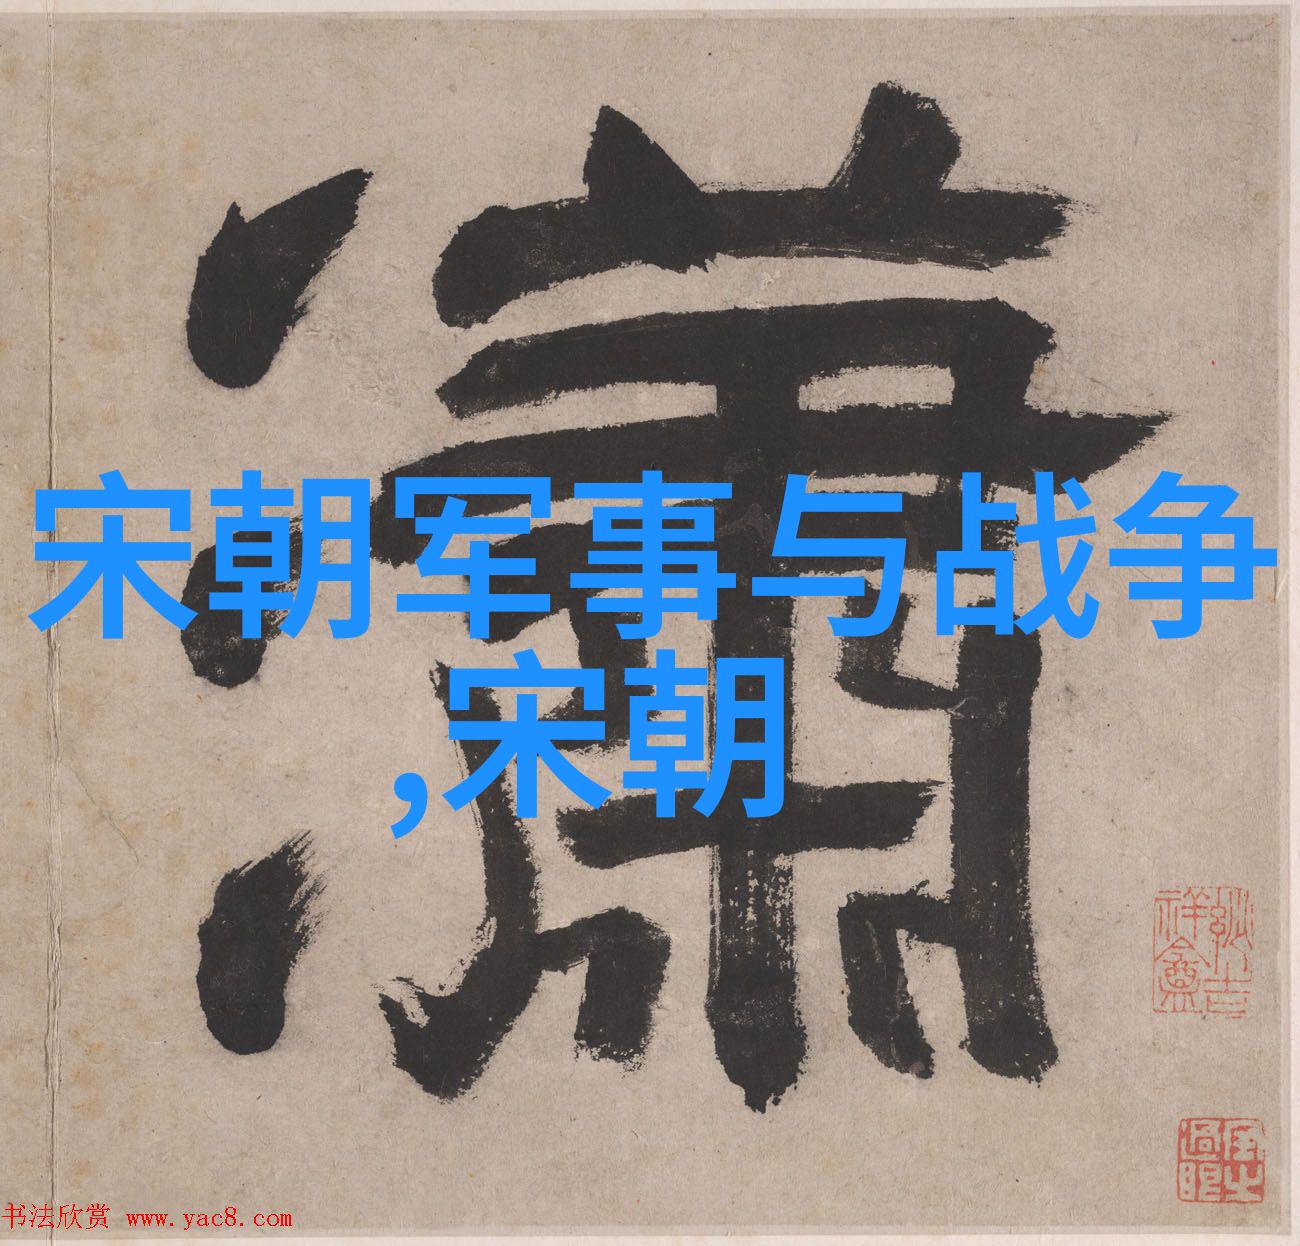 瀟
宋朝军事与战争
,宋朝
书法欣赏 www.yac8.com